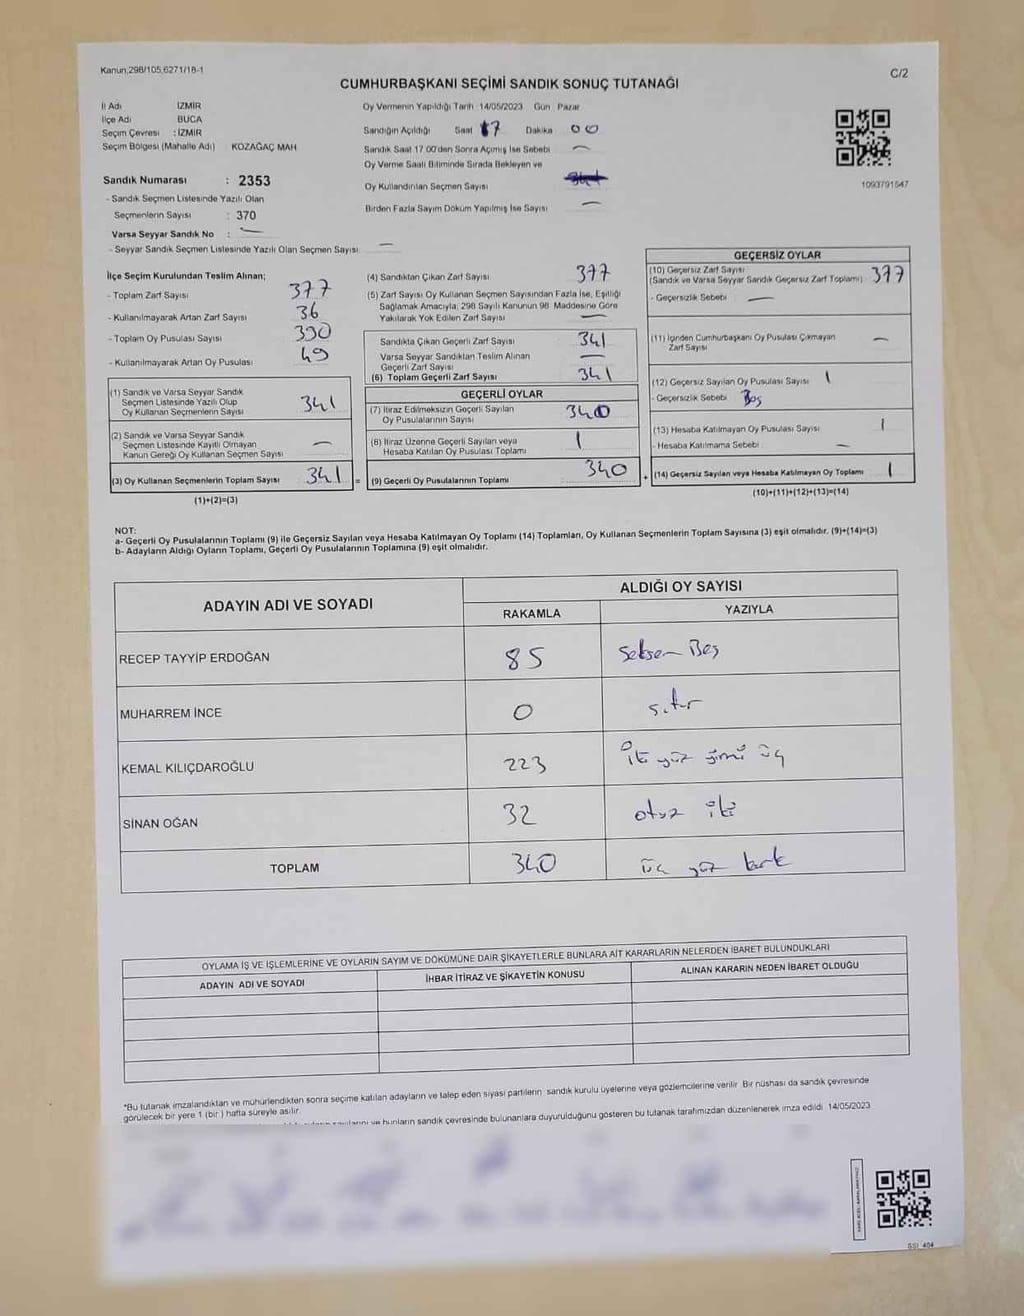 Kanun,298/105,6271/18-1
C/2
CUMHURBAŞKANI SEÇİMİ SANDIK SONUÇ TUTANAĞI
İl Adı İZMİR
İlçe Adı BUCA
Seçim Çevresi : İZMİR
Seçim Bölgesi (Mahalle Adı) KOZAĞAÇ MAH
Sandık Numarası : 2353
- Sandık Seçmen Listesinde Yazılı Olan
Seçmenlerin Sayısı : 370
Varsa Seyyar Sandık No : —
- Seyyar Sandık Seçmen Listesinde Yazılı Olan Seçmen Sayısı —
Oy Vermenin Yapıldığı Tarih 14/05/2023 Gün Pazar
Sandığın Açıldığı Saat 17 Dakika 00
Sandık Saat 17.00'den Sonra Açımış İse Sebebi —
Oy Verme Saati Bitiminde Sırada Bekleyen ve
Oy Kullandırılan Seçmen Sayısı
Birden Fazla Sayım Döküm Yapılmış İse Sayısı —
1093791547
İlçe Seçim Kurulundan Teslim Alınan;
- Toplam Zarf Sayısı 377
- Kullanılmayarak Artan Zarf Sayısı 36
- Toplam Oy Pusulası Sayısı 390
- Kullanılmayarak Artan Oy Pusulası 49
(1) Sandık ve Varsa Seyyar Sandık
Seçmen Listesinde Yazılı Olup
Oy Kullanan Seçmenlerin Sayısı 341
(2) Sandık ve Varsa Seyyar Sandık
Seçmen Listesinde Kayıtlı Olmayan
Kanun Gereği Oy Kullanan Seçmen Sayısı —
(3) Oy Kullanan Seçmenlerin Toplam Sayısı 341 =
(1)+(2)=(3)
(4) Sandıktan Çıkan Zarf Sayısı 377
(5) Zarf Sayısı Oy Kullanan Seçmen Sayısından Fazla İse, Eşitliği
Sağlamak Amacıyla; 298 Sayılı Kanunun 98. Maddesine Göre
Yakılarak Yok Edilen Zarf Sayısı —
Sandıkta Çıkan Geçerli Zarf Sayısı 341
Varsa Seyyar Sandıktan Teslim Alınan
Geçerli Zarf Sayısı —
(6) Toplam Geçerli Zarf Sayısı 341
GEÇERLİ OYLAR
(7) İtiraz Edilmeksizin Geçerli Sayılan
Oy Pusulalarının Sayısı 340
(8) İtiraz Üzerine Geçerli Sayılan veya
Hesaba Katılan Oy Pusulası Toplamı 1
(9) Geçerli Oy Pusulalarının Toplamı 340 +
GEÇERSİZ OYLAR
(10) Geçersiz Zarf Sayısı
(Sandık ve Varsa Seyyar Sandık Geçersiz Zarf Toplamı) 377
- Geçersizlik Sebebi —
(11) İçinden Cumhurbaşkanı Oy Pusulası Çıkmayan
Zarf Sayısı —
(12) Geçersiz Sayılan Oy Pusulası Sayısı 1
- Geçersizlik Sebebi Boş
(13) Hesaba Katılmayan Oy Pusulası Sayısı 1
- Hesaba Katılmama Sebebi —
(14) Geçersiz Sayılan veya Hesaba Katılmayan Oy Toplamı 1
(10)+(11)+(12)+(13)=(14)
NOT:
a- Geçerli Oy Pusulalarının Toplamı (9) ile Geçersiz Sayılan veya Hesaba Katılmayan Oy Toplamı (14) Toplamları, Oy Kullanan Seçmenlerin Toplam Sayısına (3) eşit olmalıdır. (9)+(14)=(3)
b- Adayların Aldığı Oyların Toplamı, Geçerli Oy Pusulalarının Toplamına (9) eşit olmalıdır.
ADAYIN ADI VE SOYADI
ALDIĞI OY SAYISI
RAKAMLA YAZIYLA
RECEP TAYYİP ERDOĞAN 85 Seksen Beş
MUHARREM İNCE 0 sıfır
KEMAL KILIÇDAROĞLU 223 İki yüz yirmi üç
SİNAN OĞAN 32 otuz iki
TOPLAM 340 üç yüz kırk
OYLAMA İŞ VE İŞLEMLERİNE VE OYLARIN SAYIM VE DÖKÜMÜNE DAİR ŞİKAYETLERLE BUNLARA AİT KARARLARIN NELERDEN İBARET BULUNDUKLARI
ADAYIN ADI VE SOYADI İHBAR İTİRAZ VE ŞİKAYETİN KONUSU ALINAN KARARIN NEDEN İBARET OLDUĞU
*Bu tutanak imzalandıktan ve mühürlendikten sonra seçime katılan adayların ve talep eden siyasi partilerin sandık kurulu üyelerine veya gözlemcilerine verilir. Bir nüshası da sandık çevresinde
görülecek bir yere 1 (bir ) hafta süreyle asılır.
ve bunların sandık çevresinde bulunanlara duyurulduğunu gösteren bu tutanak tarafımızdan düzenlenerek imza edildi 14/05/2023